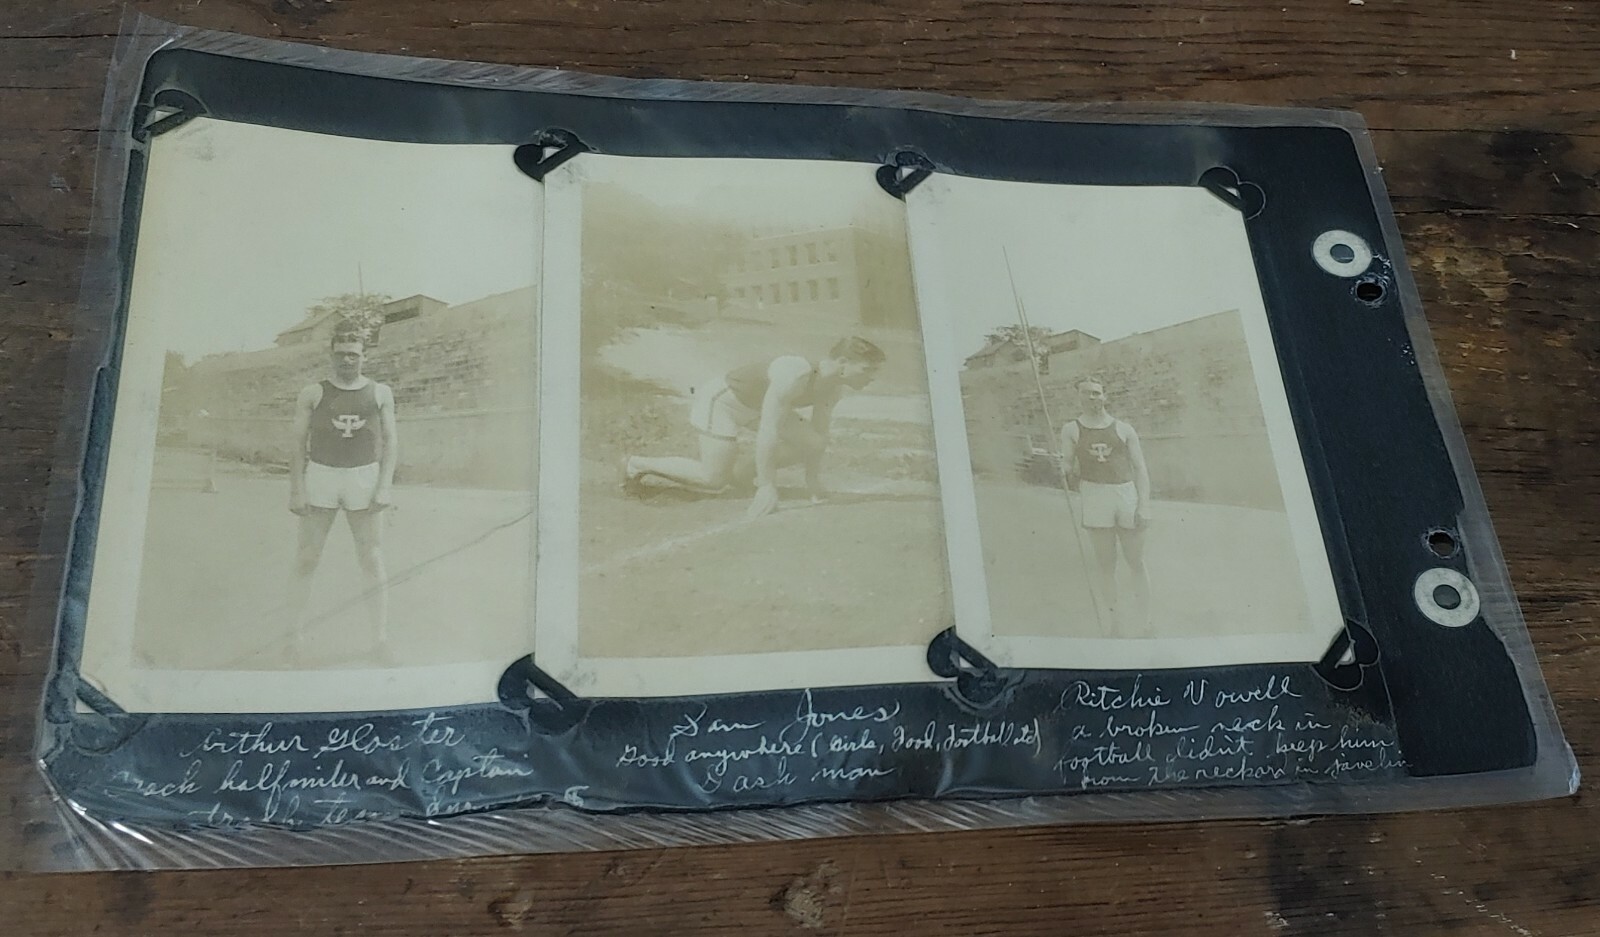 T
T
Arthur Gloster
halfmiler and Captain
track team
Sam Jones
Good anywhere (Girls, Food, Football etc)
Dash man
Ritchie Vowell
a broken neck in
football didn't keep him
from the reckord in javelin